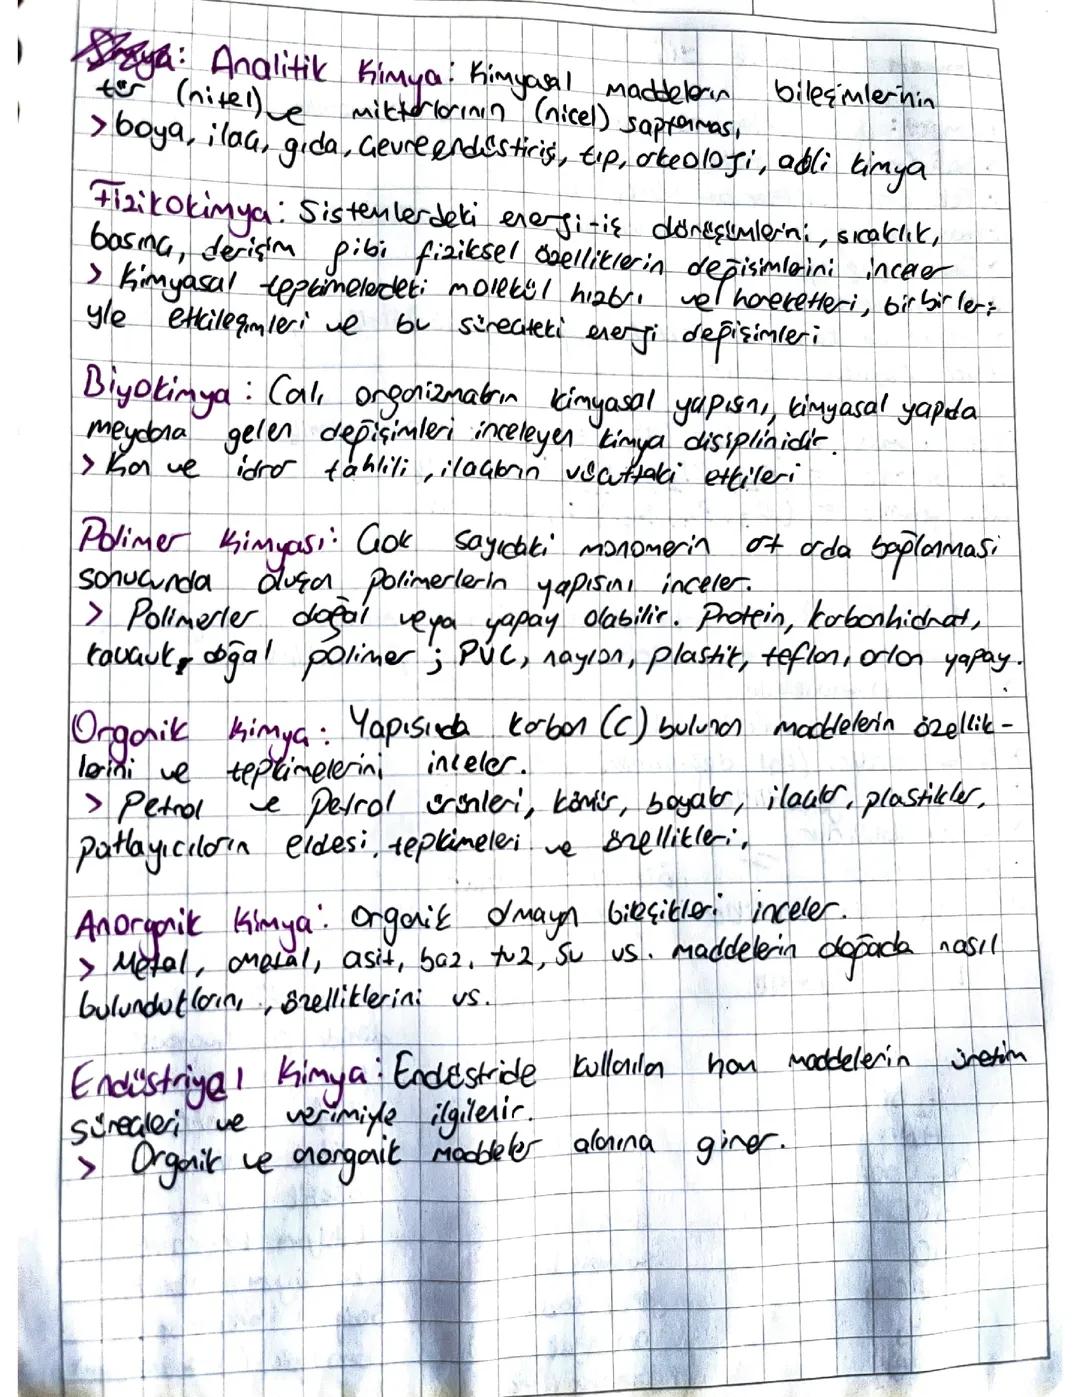 Analitik Kimya: Kimyasal maddelerin bileşimlerinin
tür (nitel) ve miktarlarının (nicel) saptanması
> boya, ilaç, gıda, çevre endüstirisi, tıp, arkeoloji, adli kimya
Fizikokimya: Sistemlerdeki enerji-iş dönüşümlerini, sıcaklık,
basınç, derişim gibi fiziksel özelliklerin değişimlerini inceler
> Kimyasal tepkimelerdeki molekül hızları ve hareketleri, birbirleri
yle etkileşimleri ve bu süreçteki enerji değişimleri
Biyokimya: Canlı organizmaların kimyasal yapısını, kimyasal yapıda
meydana gelen değişimleri inceleyen kimya disiplinidir.
> Kan ve idrar tahlili, ilaçların vücuttaki etkileri
Polimer Kimyası: Çok sayıdaki monomerin art arda bağlanması
sonucunda oluşan polimerlerin yapısını inceler.
> Polimerler doğal veya yapay olabilir. Protein, karbonhidrat,
kauçuk, doğal polimer; PVC, naylon, plastik, teflon, orlon yapay.
Organik Kimya: Yapısında karbon (C) bulunan maddelerin özellik-
lerini ve tepkimelerini inceler.
> Petrol ve petrol ürünleri, kömür, boyalar, ilaçlar, plastikler,
patlayıcıların eldesi, tepkimeleri ve özellikleri.
Anorganik Kimya: Organik olmayan bileşikleri inceler.
> Metal, ametal, asit, baz, tuz, su vs. maddelerin doğada nasıl
bulunduklarını, özelliklerini vs.
Endüstriyel Kimya: Endüstride kullanılan ham maddelerin üretim
süreçleri ve verimiyle ilgilenir.
> Organik ve anorganik maddeler alanına girer.